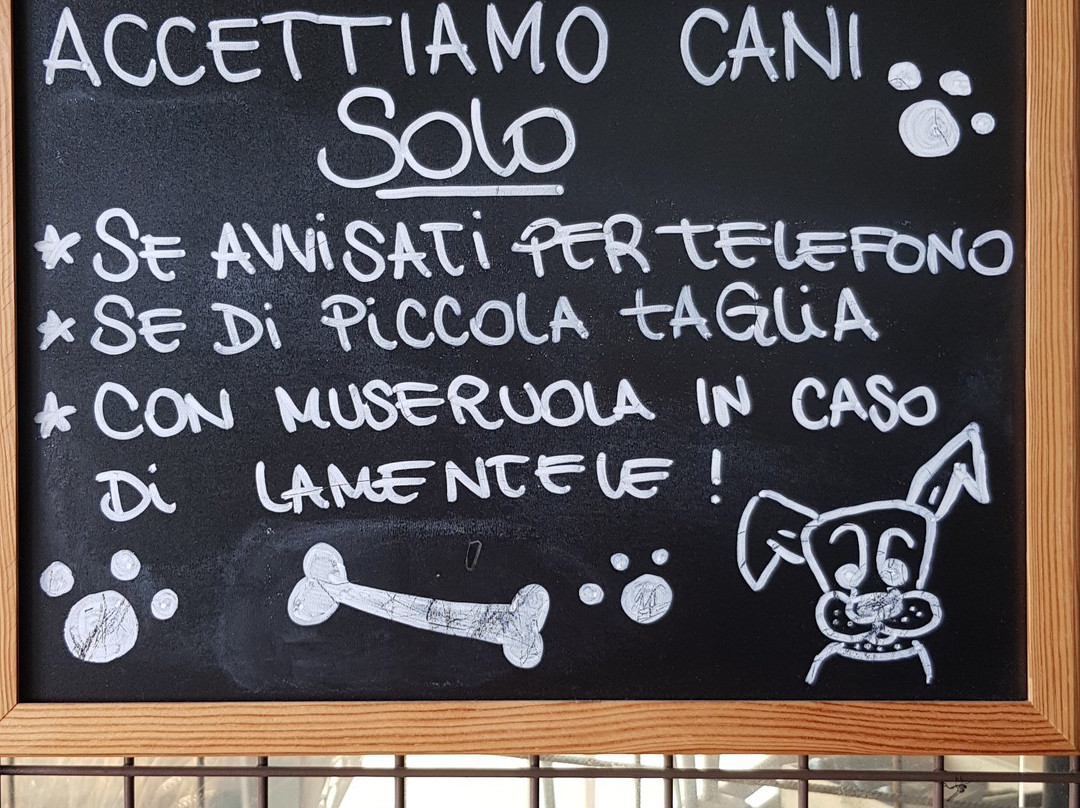 ACCETTIAMO CANI
SOLO
* SE AVVISATI PER TELEFONO
* SE DI PICCOLA TAGLIA
* CON MUSERUOLA IN CASO
DI LAMENTELE !